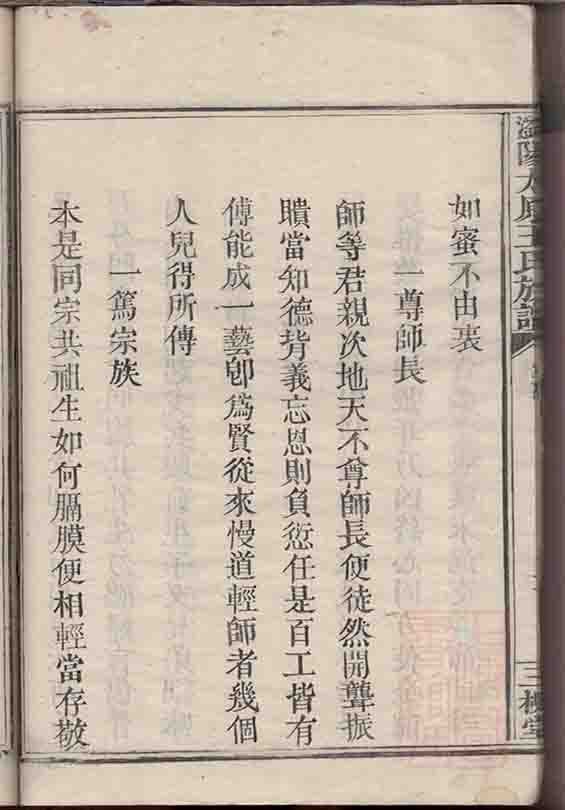 陽太原王氏族譜
三槐堂
如蜜不由衷
一尊師長
師等君親次地天不尊師長便徒然開聾振
聵當知德背義忘恩則負愆任是百工皆有
傅能成一藝卽爲賢從來慢道輕師者幾個
人兒得所傳
一篤宗族
本是同宗共祖生如何膈膜便相輕當存敬